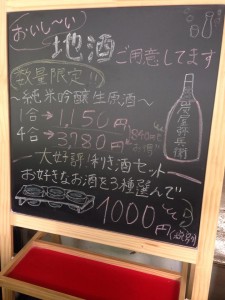 おいし〜い
地酒ご用意してます
数量限定!!
〜純米吟醸生原酒〜
1合→1,150円
4合→3,780円
炭屋弥兵衛
大好評!利き酒セット
お好きなお酒を3種選んで
1000円(税別)